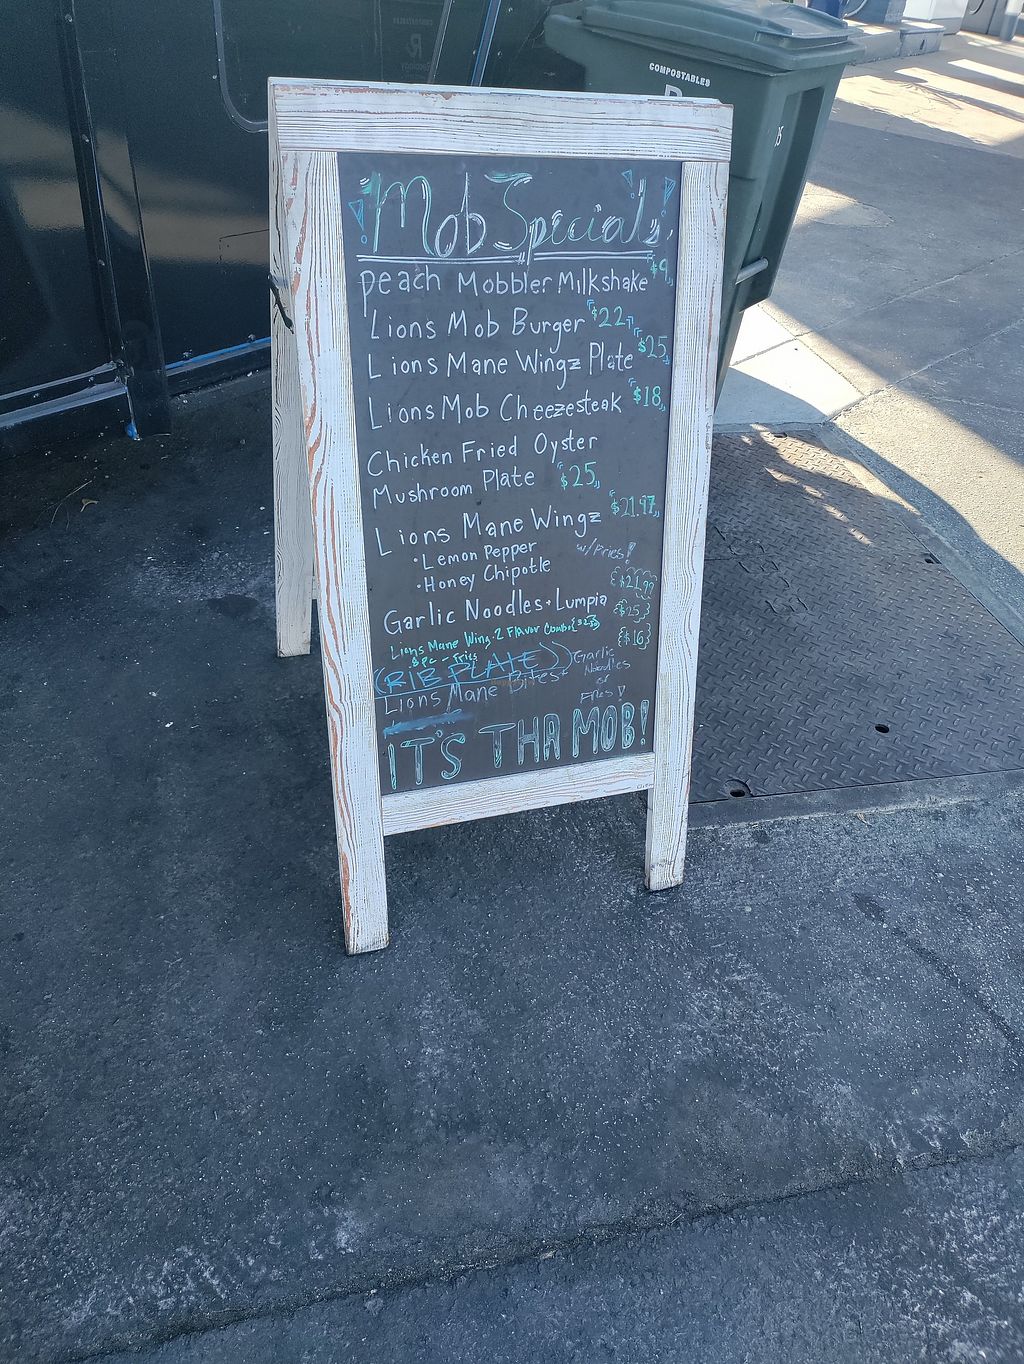 COMPOSTABLES
R
Mob Specials
Peach Mobbler Milkshake $9
Lions Mob Burger $22
Lions Mane Wingz Plate $25
Lions Mob Cheezesteak $18
Chicken Fried Oyster
Mushroom Plate $25
Lions Mane Wingz $21.97
• Lemon Pepper w/Fries!
• Honey Chipotle
Garlic Noodles • Lumpia {$21.99}
Lions Mane Wing • 2 Flavor Combo
8 pc - Fries
((RIB PLATE)) {$25}
Lions Mane Bites {$16}
Garlic
Noodles
or
Fries!
IT'S THA MOB!